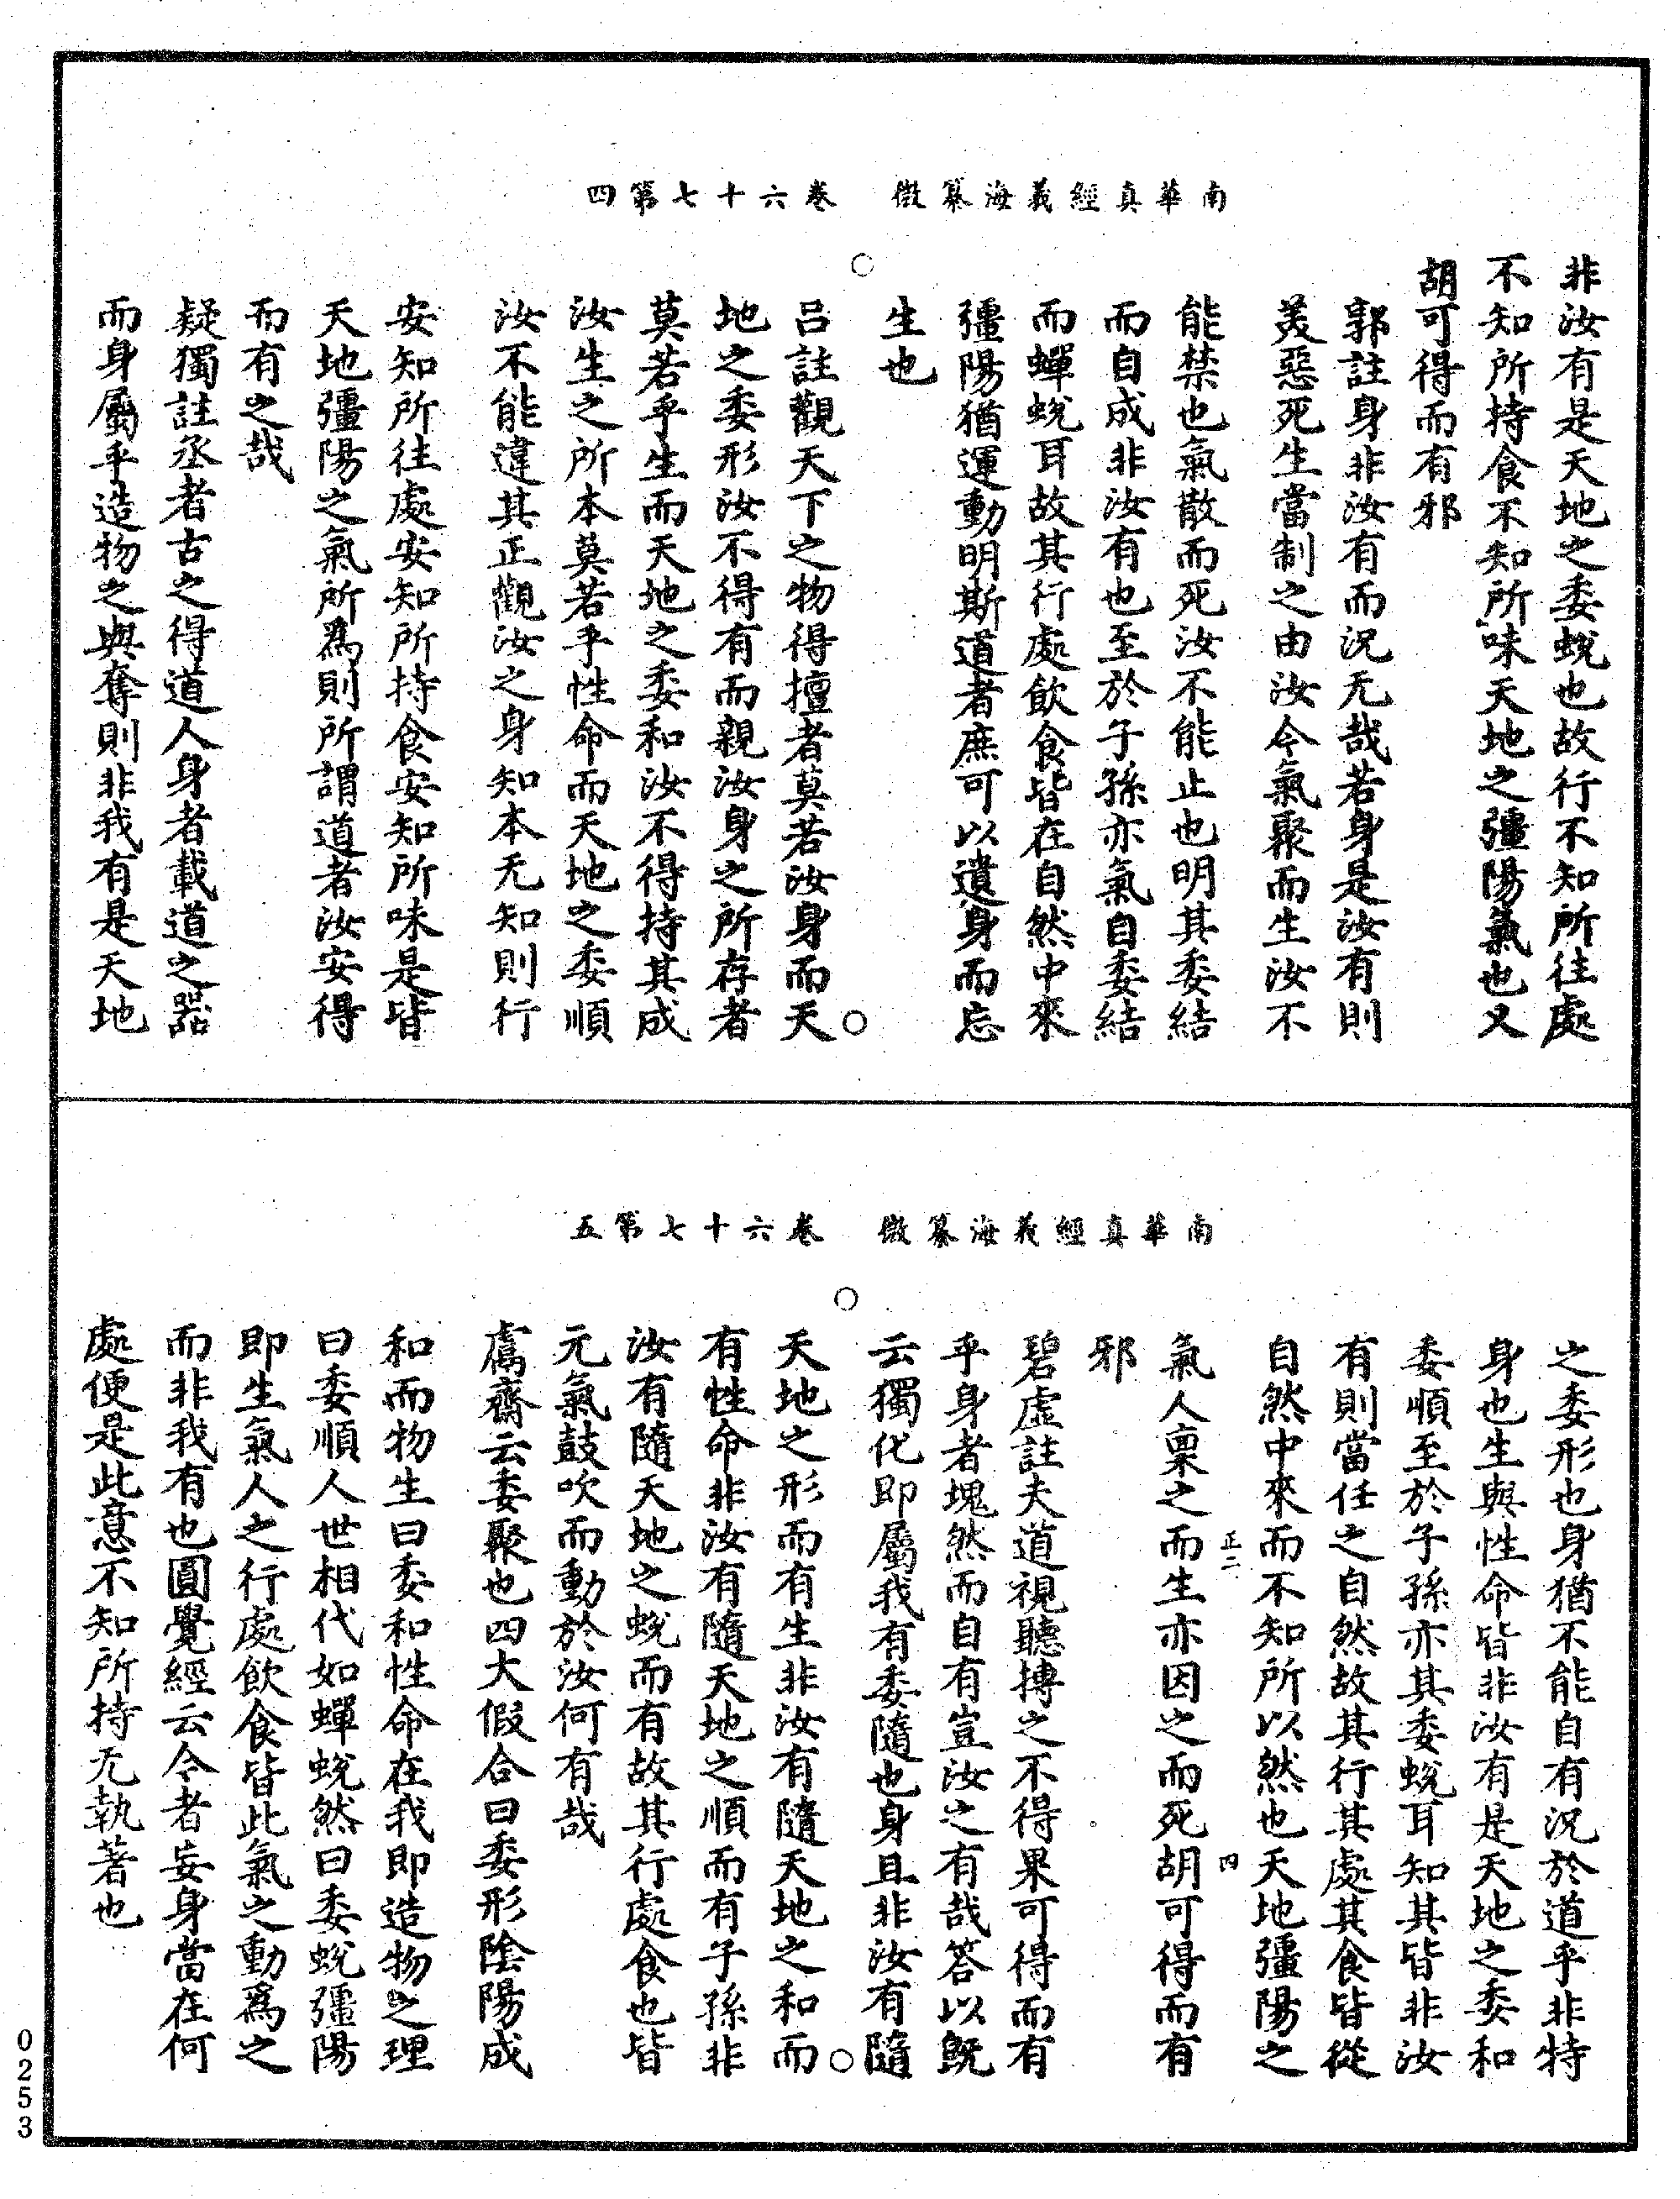 南華真經義海纂微　卷六十七第四
非汝有是天地之委蛻也故行不知所往處
不知所持食不知所味天地之彊陽氣也又
胡可得而有邪
郭註身非汝有而況无哉若身是汝有則
羙惡死生當制之由汝今氣聚而生汝不
能禁也氣散而死汝不能止也明其委結
而自成非汝有也至於子孫亦氣自委結
而蟬蛻耳故其行處飲食皆在自然中來
彊陽猶運動明斯道者庶可以遺身而忘
生也
呂註觀天下之物得擅者莫若汝身而天
地之委形汝不得有而親汝身之所存者
莫若乎生而天地之委和汝不得持其成
汝生之所本莫若乎性命而天地之委順
汝不能違其正觀汝之身知本无知則行
安知所往處安知所持食安知所味是皆
天地彊陽之氣所為則所謂道者汝安得
而有之哉
疑獨註丞者古之得道人身者載道之器
而身屬乎造物之與奪則非我有是天地
南華真經義海纂微　卷六十七第五
之委形也身猶不能自有況於道乎非特
身也生與性命皆非汝有是天地之委和
委順至於子孫亦其委蛻耳知其皆非汝
有則當任之自然故其行其處其食皆從
自然中來而不知所以然也天地彊陽之
正二　四
氣人稟之而生亦因之而死胡可得而有
邪
碧虛註夫道視聽摶之不得果可得而有
乎身者塊然而自有豈汝之有哉答以既
云獨化即屬我有委隨也身且非汝有隨
天地之形而有生非汝有隨天地之和而
有性命非汝有隨天地之順而有子孫非
汝有隨天地之蛻而有故其行處食也皆
元氣鼓吹而動於汝何有哉
鬳齋云委聚也四大假合曰委形陰陽成
和而物生曰委和性命在我即造物之理
曰委順人世相代如蟬蛻然曰委蛻彊陽
即生氣人之行處飲食皆此氣之動為之
而非我有也圓覺經云今者妄身當在何
處便是此意不知所持无執著也
0253